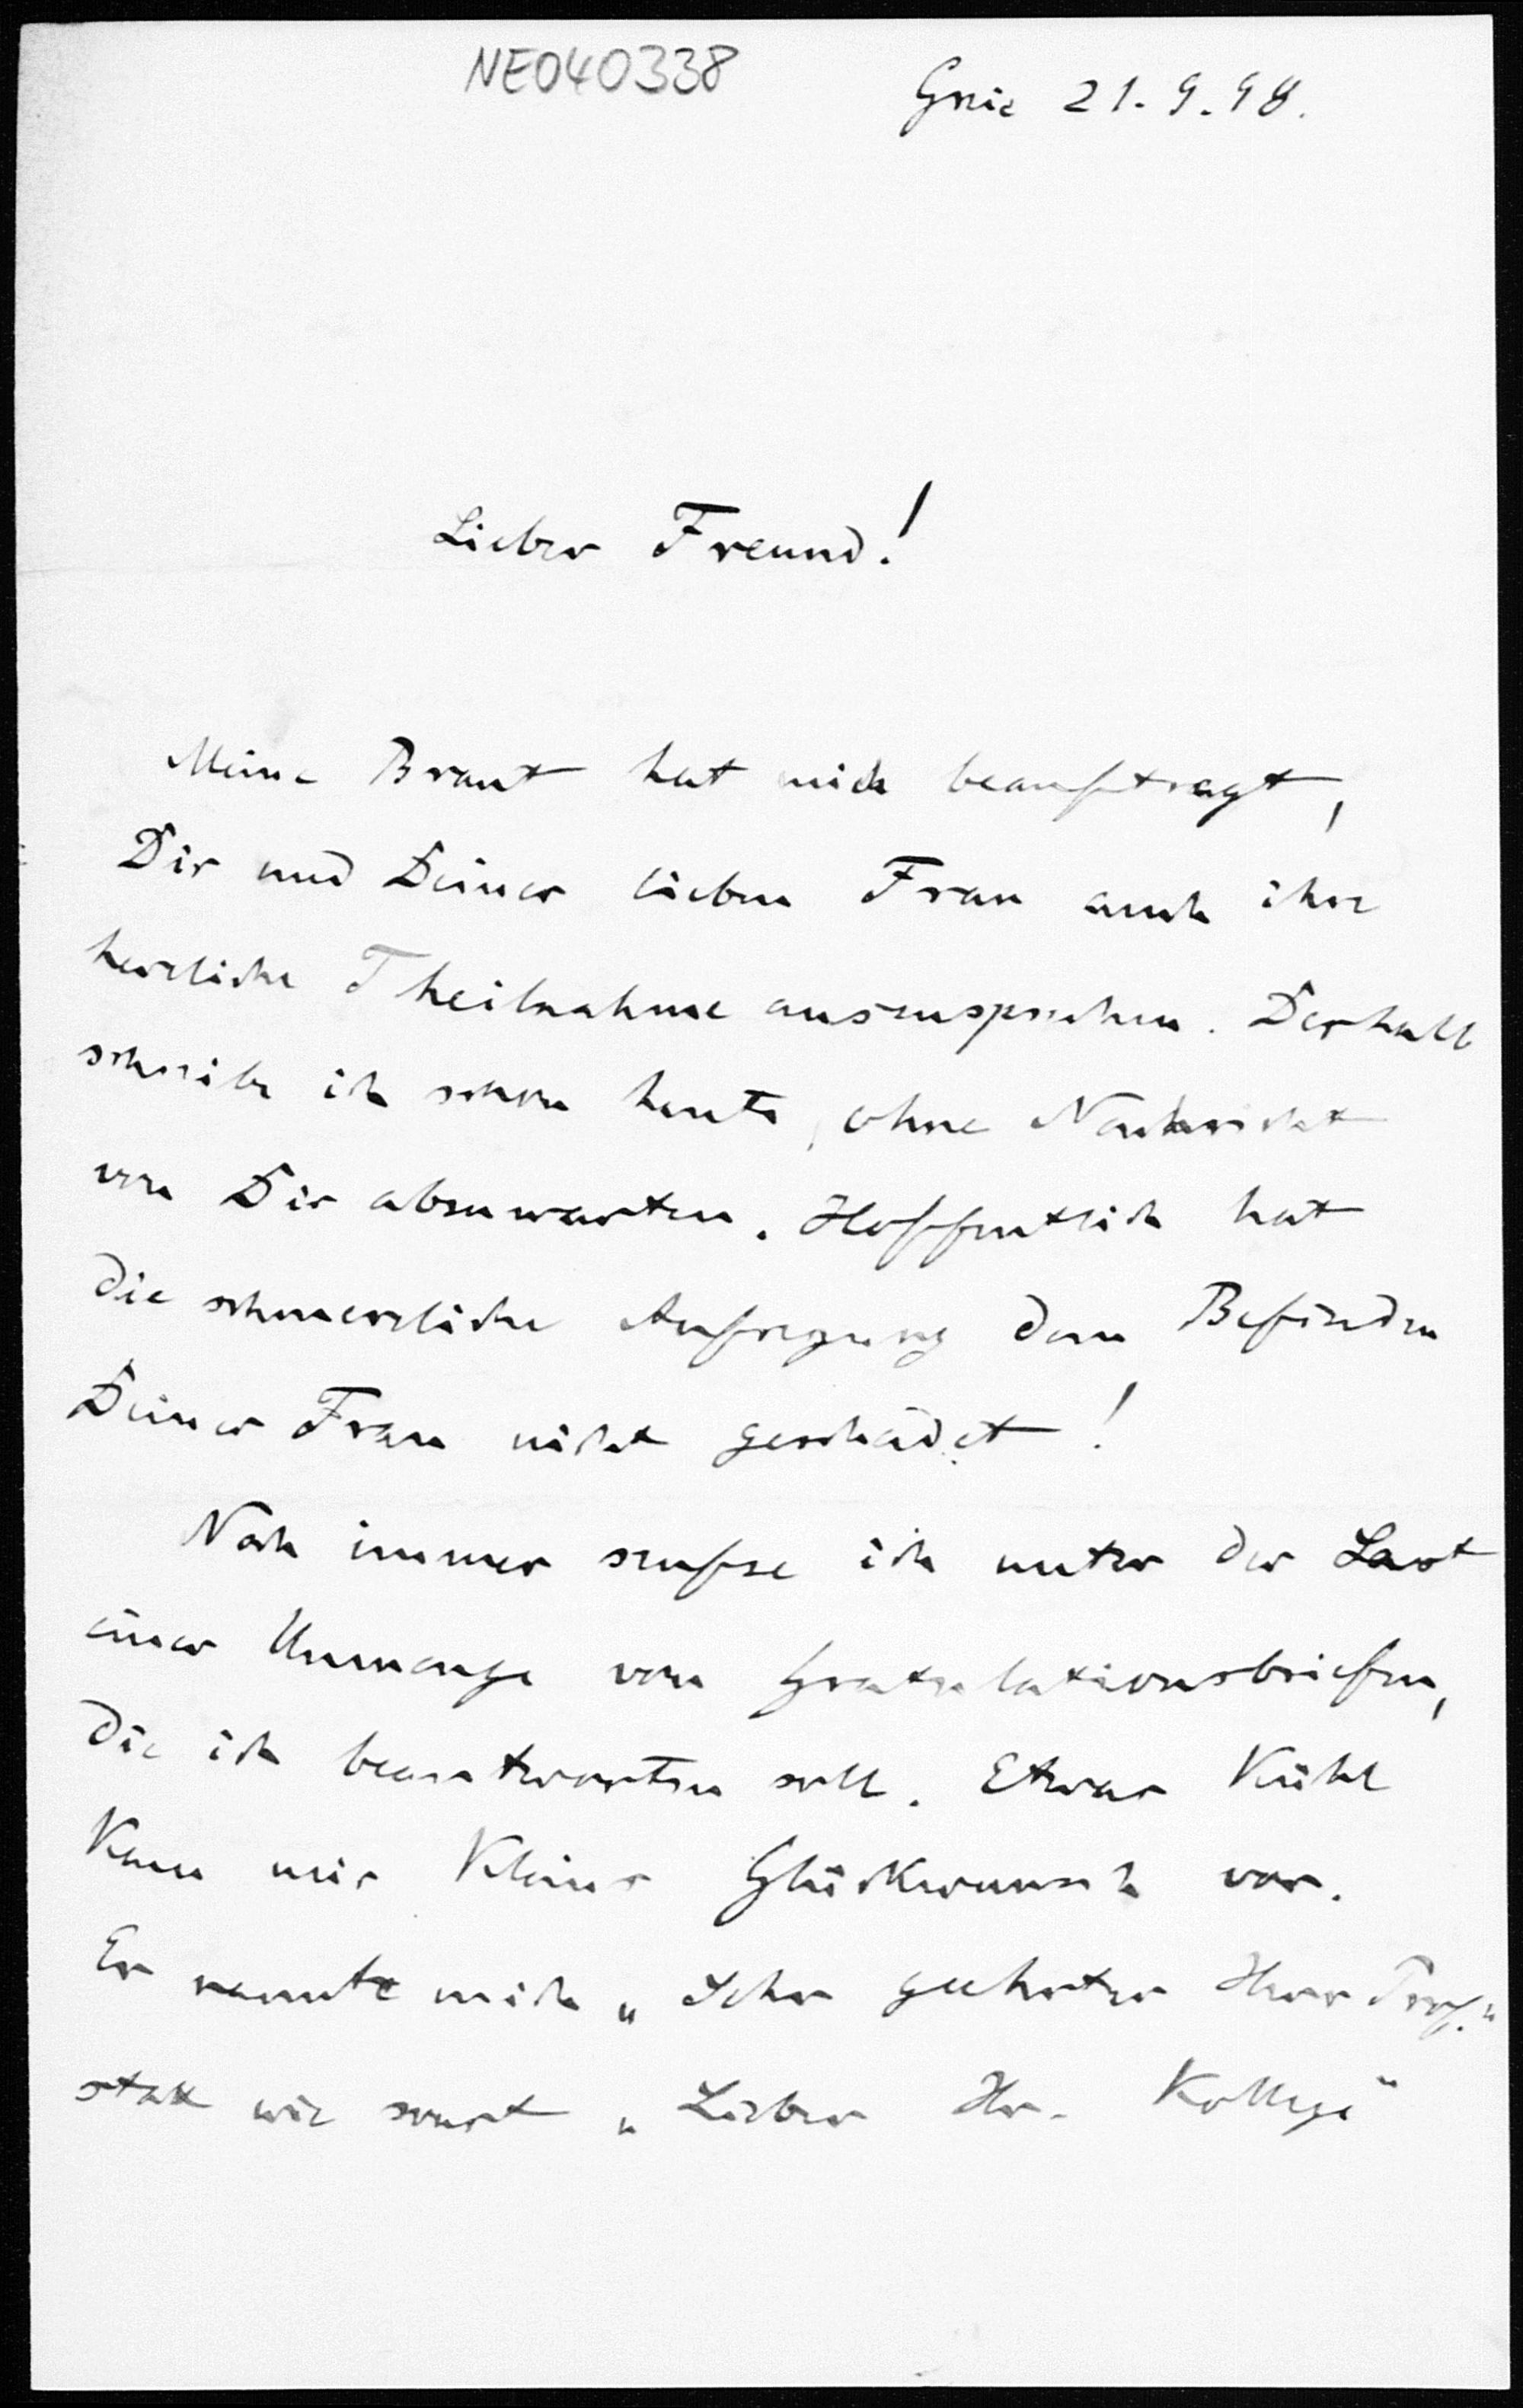 NE040338
Grie 21.9.98.
Lieber Freund!
Meine Braut hat mich beauftragt,
Dir und Deiner lieben Frau auch ihre
herzliche Theilnahme auszusprechen. Deshalb
schreibe ich schon heute, ohne Nachricht
von Dir abzuwarten. Hoffentlich hat
die schmerzliche Aufregung dem Befinden
Deiner Frau nicht geschadet!
Noch immer seufze ich unter der Last
einer Unmenge von Gratulationsbriefen,
die ich beantworten soll. Etwas kühl
kam mir Kleins Glückwunsch vor.
Er nannte mich „Sehr geehrter Herr Prof."
statt wie sonst „Lieber Hr. Kollege"